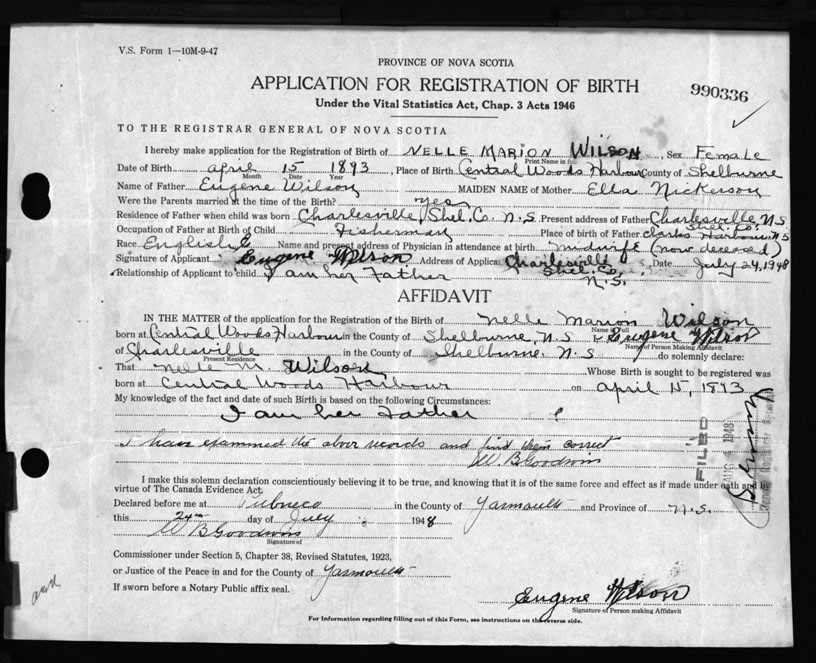 V.S. Form 1—10M-9-47
PROVINCE OF NOVA SCOTIA
APPLICATION FOR REGISTRATION OF BIRTH
990336
Under the Vital Statistics Act, Chap. 3 Acts 1946
TO THE REGISTRAR GENERAL OF NOVA SCOTIA
I hereby make application for the Registration of Birth of NELLE MARION WILSON, Sex Female
Print Name in full
Date of Birth April 15 1893, Place of Birth Central Woods Harbour County of Shelburne
Month Date Year
Name of Father Eugene Wilson MAIDEN NAME of Mother Ella Nickerson
Were the Parents married at the time of the Birth? yes
Residence of Father when child was born Charlesville, Shel. Co. N.S. Present address of Father Charlesville, N.S.
Shel. Co.
Occupation of Father at Birth of Child Fisherman Place of birth of Father Clarks Harbour N S
Race English Name and present address of Physician in attendance at birth midwife (now deceased)
Signature of Applicant Eugene Wilson Address of Applica Charlesville Date July 24, 1948
Shel. Co.
Relationship of Applicant to child I am her Father
N.S.
AFFIDAVIT
IN THE MATTER of the application for the Registration of the Birth of Nelle Marion Wilson
Name in Full
born at Central Woods Harbour in the County of Shelburne, N.S Eugene Wilson
Name of Person Making Affidavit
of Charlesville in the County of Shelburne, N.S do solemnly declare:
Present Residence
That Nelle M. Wilson Whose Birth is sought to be registered was
born at Central Woods Harbour on April 15, 1893
My knowledge of the fact and date of such Birth is based on the following Circumstances:
I am her Father
I have examined the above records and find them correct
W. B Goodwin
FILED
AUG 4 1948
I make this solemn declaration conscientiously believing it to be true, and knowing that it is of the same force and effect as if made under oath and by
virtue of The Canada Evidence Act.
Declared before me at Pubnico in the County of Yarmouth and Province of N.S.
this 24th day of July 1948
W B Goodwin
Signature of
Commissioner under Section 5, Chapter 38, Revised Statutes, 1923,
or Justice of the Peace in and for the County of Yarmouth
If sworn before a Notary Public affix seal.
Eugene Wilson
Signature of Person making Affidavit
For Information regarding filling out of this Form, see instructions on the reverse side.